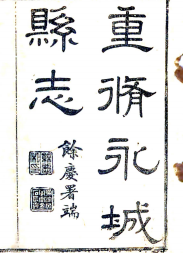 重脩永城
縣志
餘慶署端